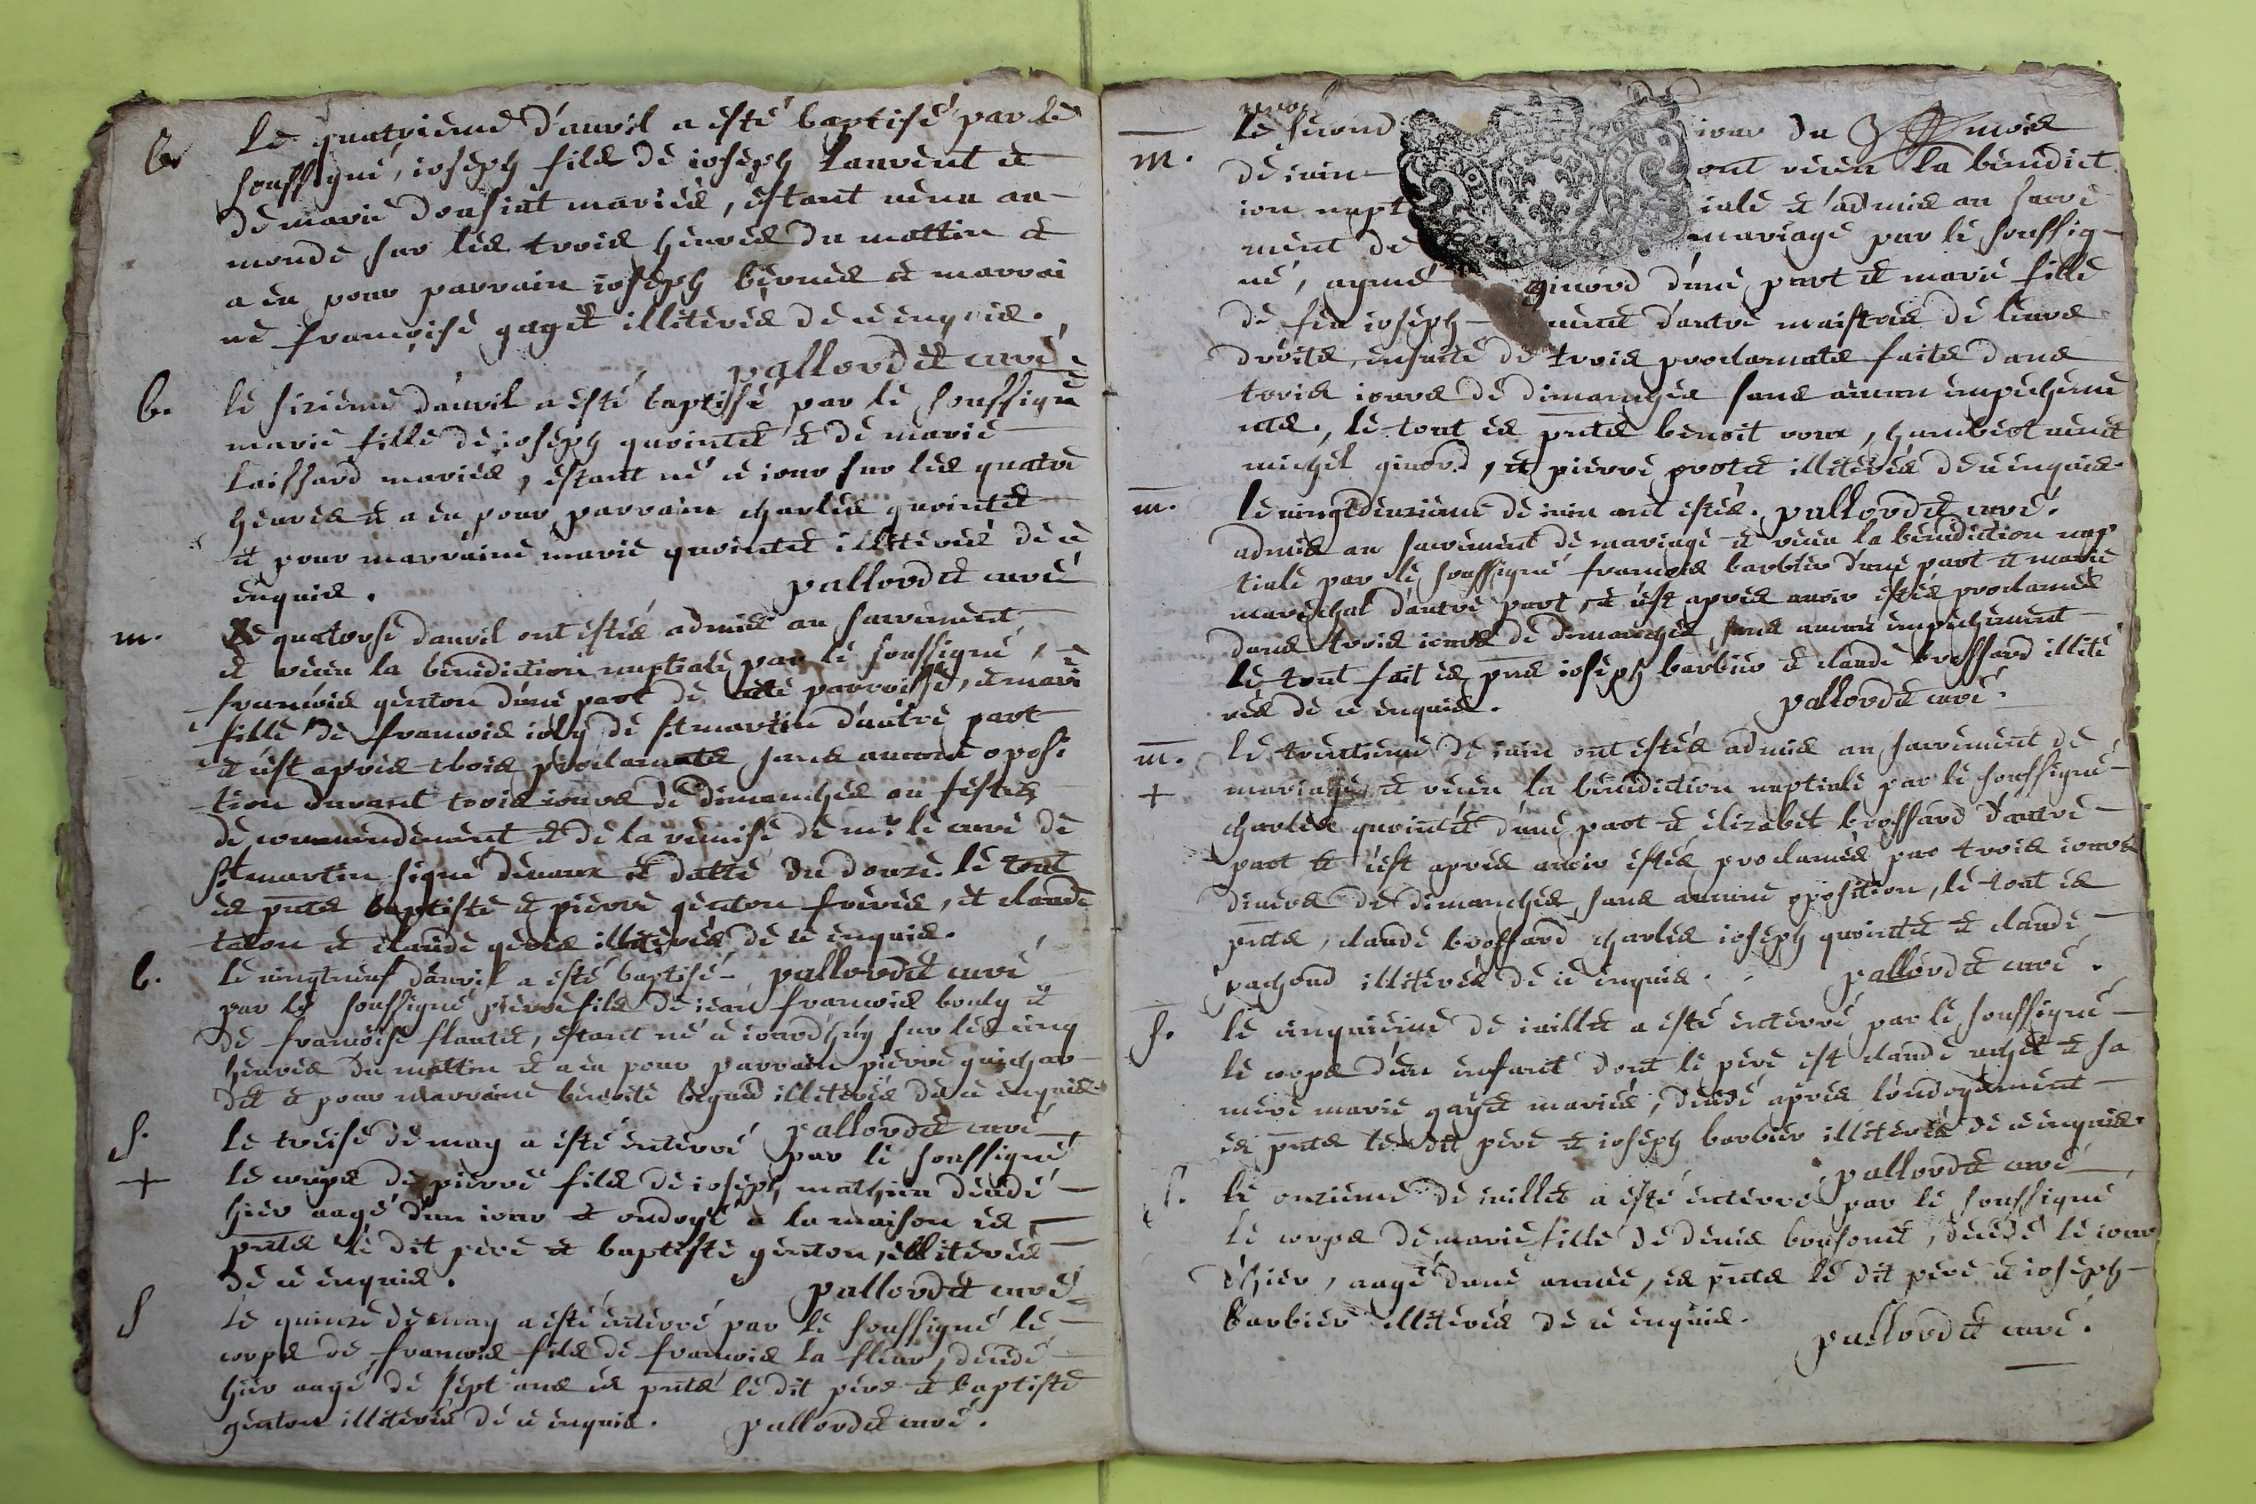 b. Le quatrieme d'auril a esté baptisé par le
soussigné, ioseph fils de ioseph Laurent et
de marie donsiat mariés, estant venu au
monde sur les trois heures du mattin et
a eu pour parrain ioseph bernes et marrai
ne francoise gaget illiterés de ce enquis.
pallordet curé
b. le sixieme dauril a esté baptissé par le soussigné
marie fille de ioseph quointet et de marie
laissard mariés, estant né ce iour sur les quatre
heures et a eu pour parrain charles quointet
et pour marraine marie quointet illiterés de ce
enquis. pallordet curé
m. Le quatorse dauril ont estés admis au sacrement
et receu la benediction nuptiale par le soussigné,
francois genton d'une part de cete parroisse, et marie
fille de francois ioly de st martin d'autre part
et c'est apres trois proclamats sans aucune oposi
tion durant trois iours de dimanches ou festes
de commendement et de la remise de mr. le curé de
st martin signé deuaux et datté du douze. le tout
es pnts baptiste et pierre genton freres, et claude
talon et claude illiterés de ce enquis.
b. le vingtneuf dauril a esté baptisé - pallordet curé
par le soussigné pierre fils de iean francois bouly et
de francoise flautet, estant né ce iourdhuy sur les cinq
heures du mattin et a eu pour parrain pierre guichar
det et pour marraine benoite illiterés de ce enquis
S. le treise de may a esté enterré pallordet curé
+ par le soussigné
le corps de pierre fils de ioseph mathieu decedé
hier aagé d'un iour et ondoyé a la maison es
pnts le dit pere et baptiste genton, illiterés
de ce enquis. pallordet curé
S le quinze de may a esté enterré par le soussigné le
corps de francois fils de francois la fleur, decedé
hier aagé de sept ans es pnts le dit pere et baptiste
genton illiterés de ce enquis. pallordet curé.
m. le second iour du mois
de iuin ont receu la benedict
ion nupt iale et admis au sacre
ment de mariage par le soussig
né, aymé giuord d'une part et marie fille
de feu ioseph d'autre maistres de leurs
droits, ensuite de trois proclamats faits dans
trois iours de dimanches sans aucun empecheme
nts, le tout es pnts benoit roux, humbert
michel giuord, et pierre protet illiterés de ce enquis.
m. le vingtdeuxieme de iuin ont estés. pallordet curé.
admis au sacrement de mariage et receu la benediction nup
tiale par le soussigné francois barbier d'une part et marie
marechal d'autre part, et c'est apres auoir estés proclamés
dans trois iours de dimanches sans aucun empechement
le tout fait es pns ioseph barbier et claude brossard illité
rés de ce enquis. pallordet curé.
m. le trentieme de iuin ont estés admis au sacrement de
+ mariage et receu la benediction nuptiale par le soussigné
charles quointet d'une part et elizabet brossard d'autre
part et c'est apres auoir estés proclamés par trois iours
diuers de dimanches sans aucune oposition, le tout es
pnts, claude brossard charles ioseph quointet et claude
pachoud illiterés de ce enquis. pallordet curé.
S. le cinquieme de iuillet a esté enterré par le soussigné
le corps d'un enfant dont le pere est claude et sa
mere marie gayet mariés, decedé apres l'ondoyement
es pnts le dit pere et ioseph barbier illiterés de ce enquis.
pallordet curé
S. le onzieme de iuillet a esté enterré par le soussigné
le corps de marie fille de denis bonsonet, decedé le iour
d'hier, aagé d'une année, es pnts le dit pere et ioseph
barbier illiterés de ce enquis.
pallordet curé.